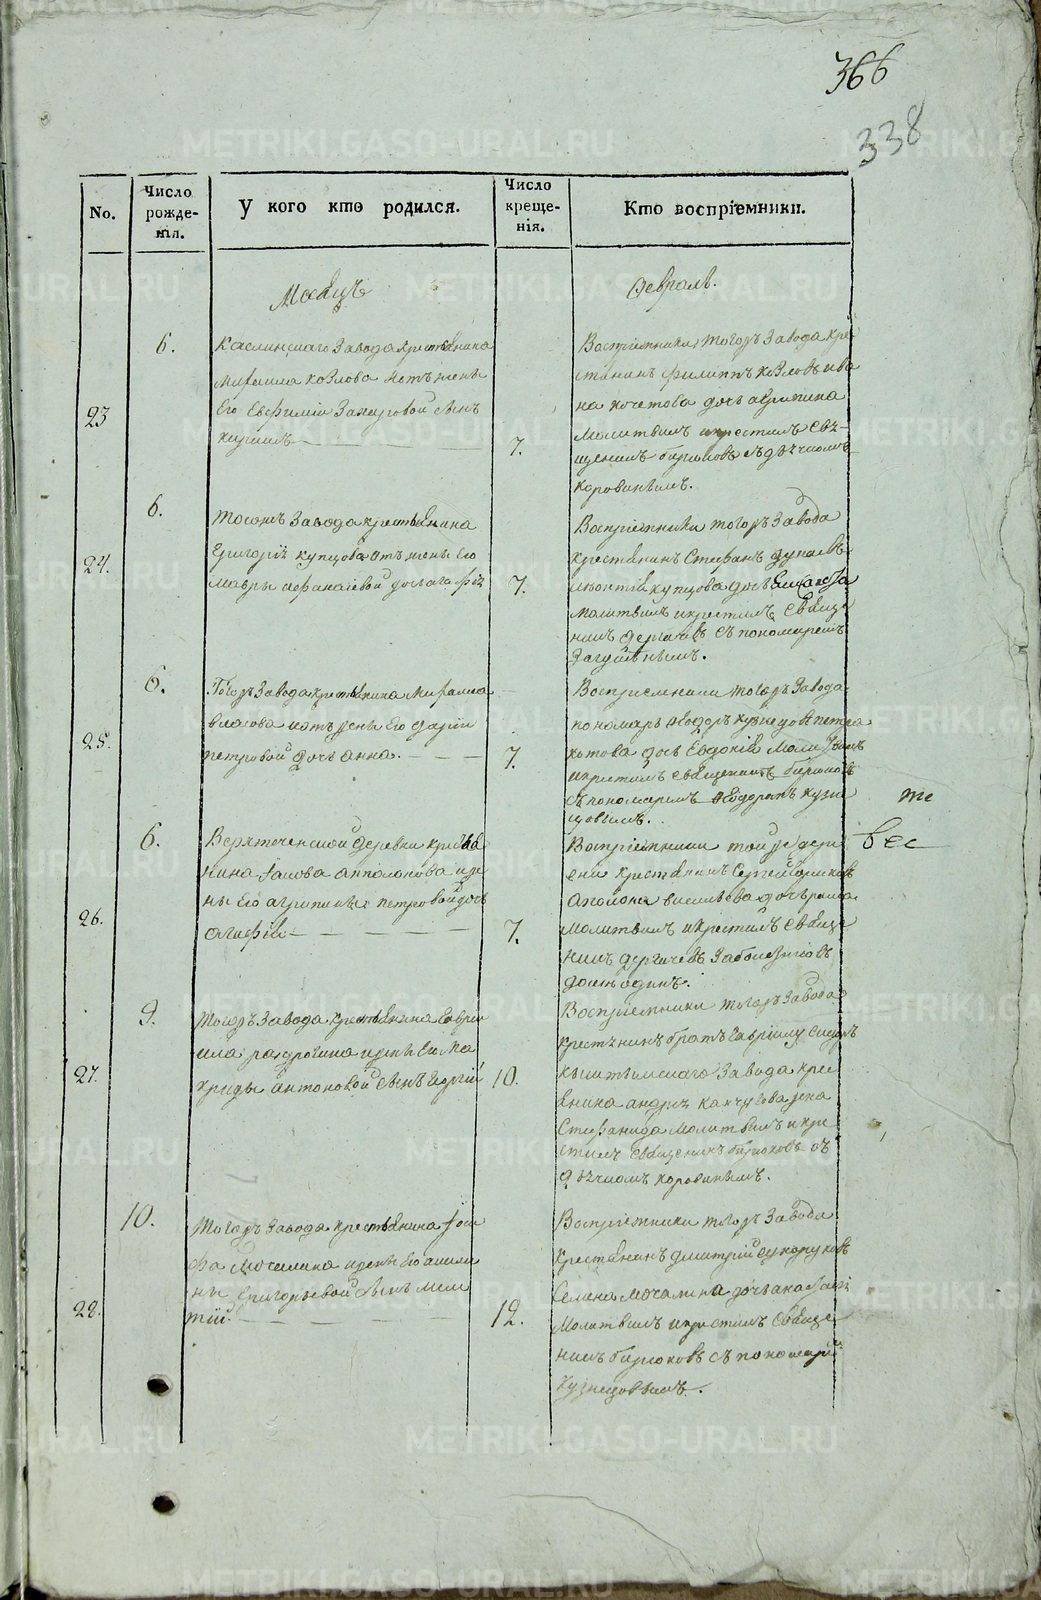 366
338
No.
Число рожденія.
У кого кто родился.
Число крещенія.
Кто воспріемники.
Месяцъ
Февраль.
23
6.
Каслинскаго Завода крестьянина
Михаила Козлова и отъ жены
Его Евфиміи Захаровой сынъ
7.
Воспріемники тогожъ Завода кре
стьянинъ Филиппъ Козловъ и ва
на кочетова дочь агрипина
Молитвилъ и крестилъ Свя-
щенникъ бирюковъ съ дьячкомъ
коровинымъ.
24.
6.
Тогожъ Завода крестьянина
Григорія купцова отъ жены Его
мавры афанасіевой дочь агафія
7.
Воспріемники тогожъ Завода
крестьянинъ Стефанъ
купцова дочь
Молитвилъ и крестилъ Священ
никъ дергачевъ съ пономаремъ
25.
6.
Тогожъ Завода крестьянина Михаила
власова и отъ жены Его Даріи
петровой дочь анна.
7.
Воспріемники тогожъ Завода
пономарь Феодоръ кузнецов петра
котова дочь Евдокія Молитвилъ
и крестилъ священникъ бирюковъ
съ пономаремъ Феодоромъ кузне
цовымъ.
26.
6.
деревни крестья
нина Іакова апполонова и же
ны Его агрипины петровой дочь
агафія
7.
Воспріемники той же дере
вни крестьянинъ Сергей
Аполона васильева дочь
Молитвилъ и крестилъ Священ
никъ дергачевъ за болезнію
одинъ.
же
вес
27.
9.
Тогожъ Завода крестьянина Гаври
ила и жены Его Ма
криды антоновой сынъ Георгій
10.
Воспріемники тогожъ Завода
крестьянинъ братъ Гавріилу
кыштымскаго Завода кресть
янина андрея качугова жена
Стефанида Молитвилъ и кре
стилъ Священникъ бирюковъ съ
дьячкомъ коровинымъ.
28.
10.
Тогожъ Завода крестьянина Іоси
фа Мочалина и жены Его акили
ны Григорьевой сынъ меле
тій.
12.
Воспріемники тогожъ Завода
крестьянинъ дмитрій сунгуровъ
Семена мочалина дочь
Молитвилъ и крестилъ Священ
никъ бирюковъ съ пономаремъ
кузнецовымъ.
METRIKI.GASO-URAL.RU